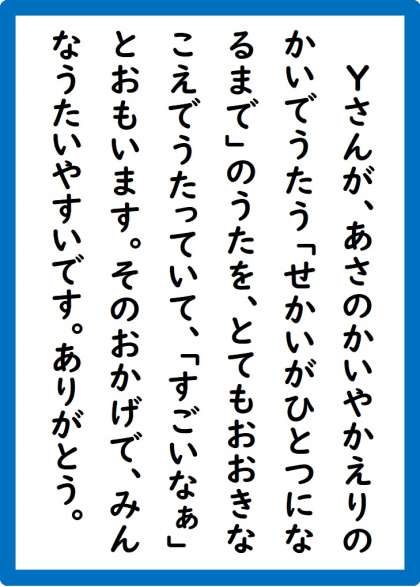 Ｙさんが、あさのかいやかえりの
かいでうたう「せかいがひとつにな
るまで」のうたを、とてもおおきな
こえでうたっていて、「すごいなぁ」
とおもいます。そのおかげで、みん
なうたいやすいです。ありがとう。